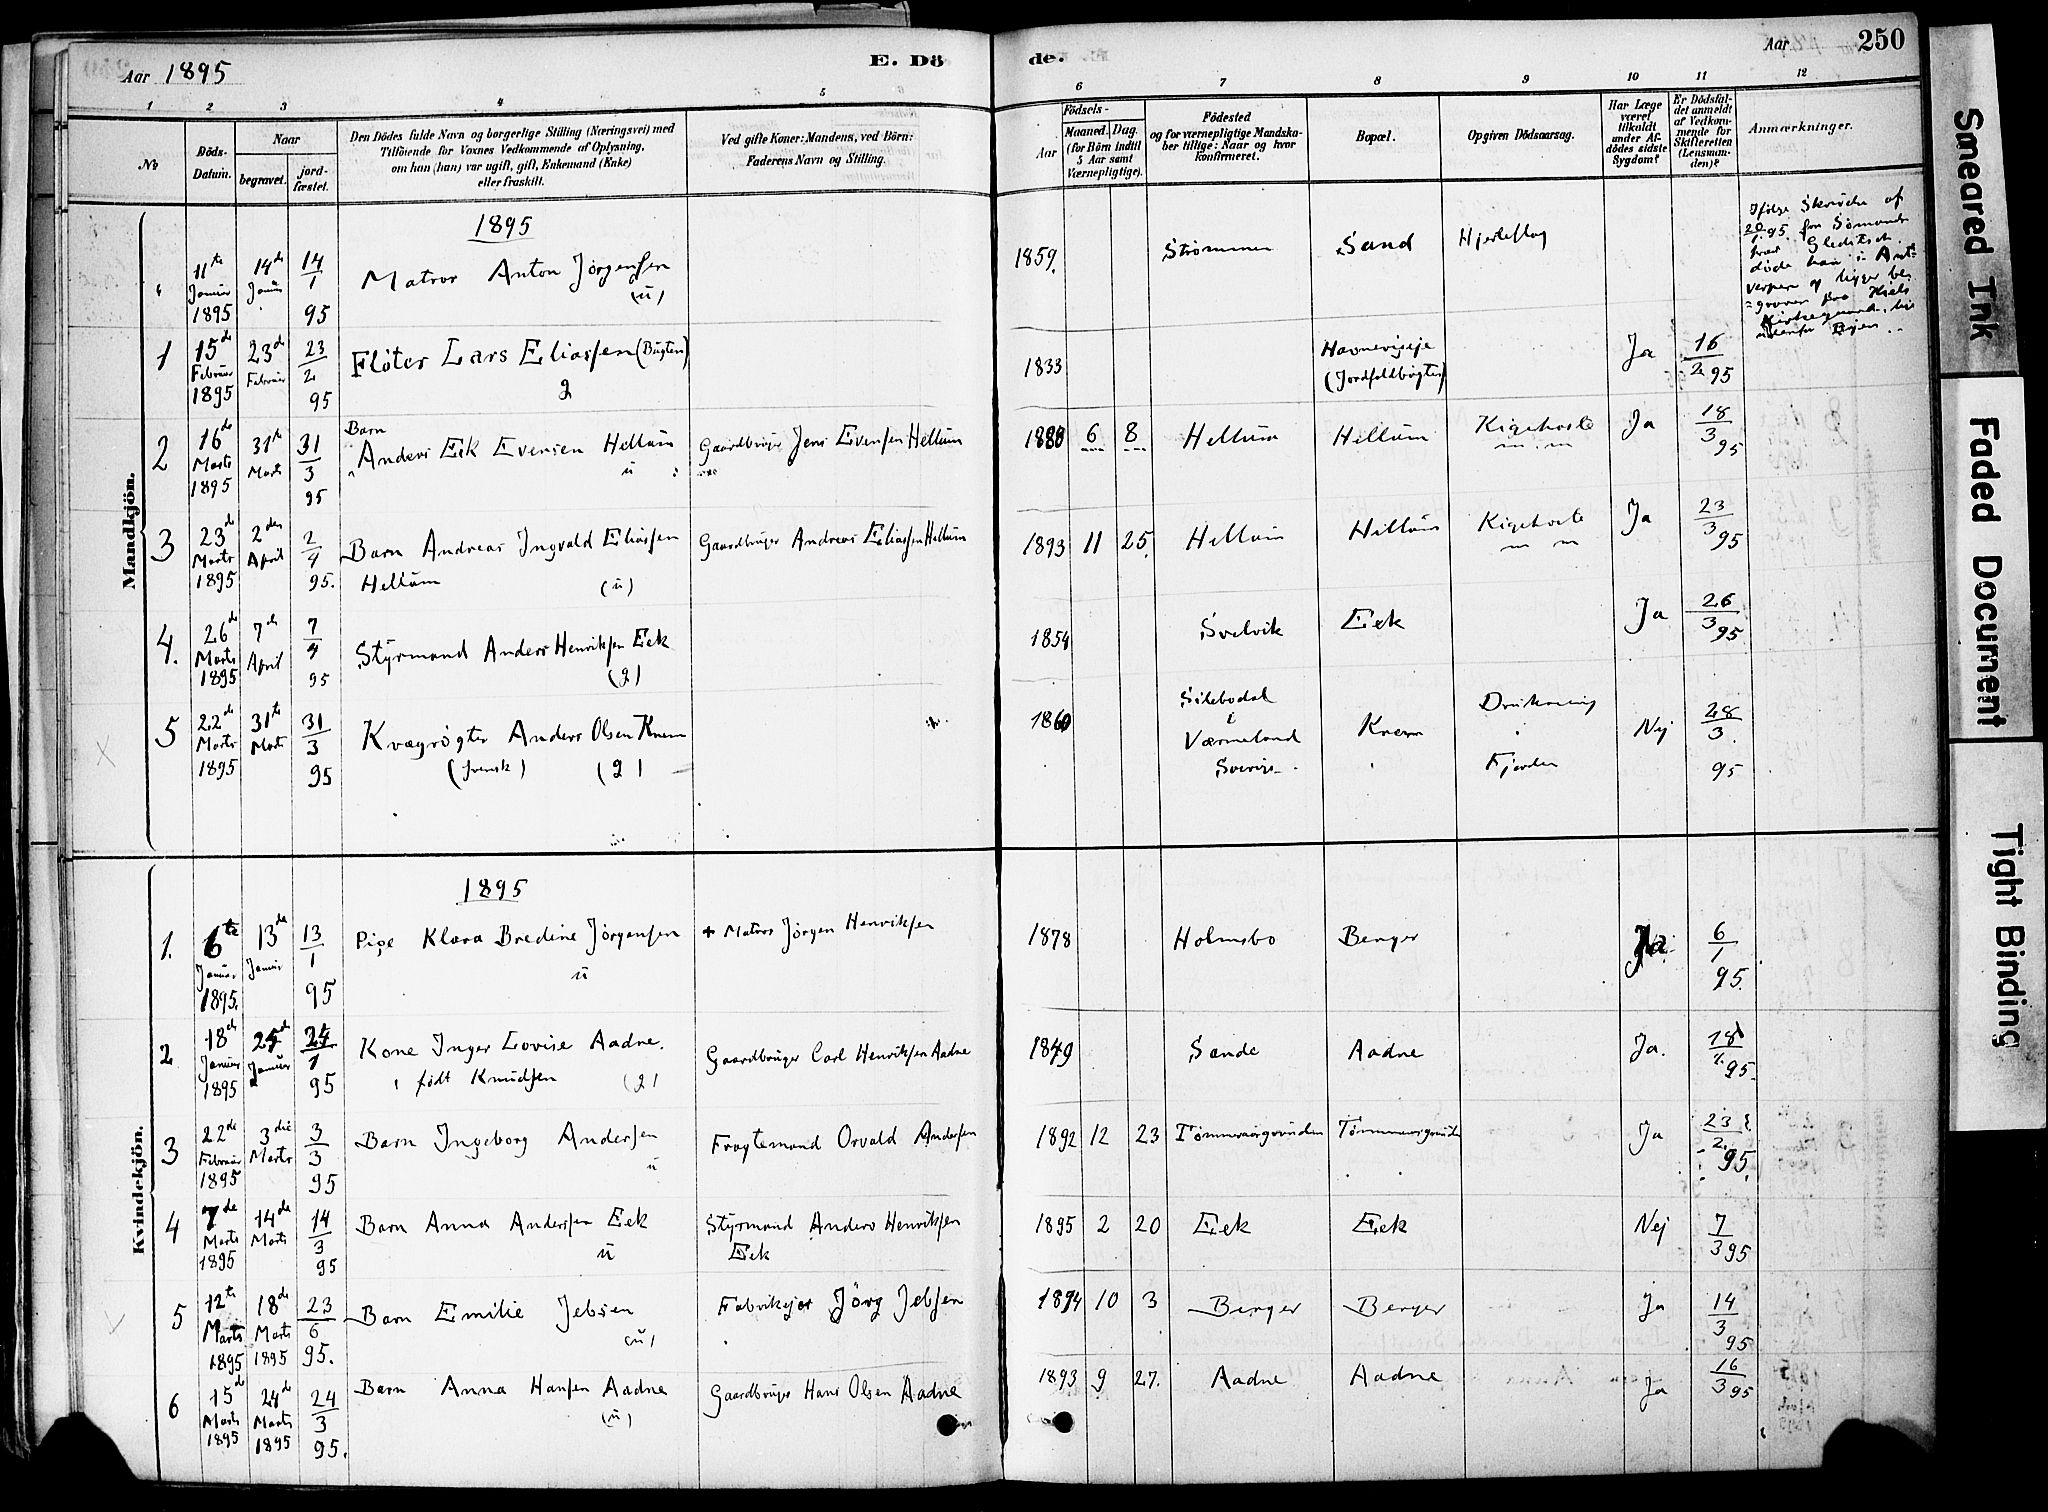 Aar 1895
E. Dö
de.
Aar
250
1 2 3 4 5 6 7 8 9 10 11 12
No
Döds-
Datum.
Naar
begravet.
jord-
fæstet.
Den Dödes fulde Navn og borgerlige Stilling (Næringsvei) med
Tilföiende for Voxnes Vedkommende af Oplysning,
om han (hun) var ugift, gift, Enkemand (Enke)
eller fraskilt.
Ved gifte Koner: Mandens, ved Börn:
Faderens Navn og Stilling.
Födsels-
Aar
Maaned. Dag.
(for Börn indtil
5 Aar samt
Værnepligtige).
Födested
og for værnepligtige Mandska-
ber tillige: Naar og hvor
konfirmeret.
Bopæl.
Opgiven Dödsaarsag.
Har Læge
været
tilkaldt
under Af-
dödes sidste
Sygdom?
Er Dödsfal-
det anmeldt
af Vedkom-
mende for
Skifteretten
(Lensman-
den)?
Anmærkninger.
Mandkjön.
1895
11te Januar 1895 14de Januar 14/1 95 Matros Anton Jörgensen (u) 1859. Strömmen Sand Hjerteslag
Ifölge Skrivelse af
döde han i Ant-
verpen og ligger be-
graven paa Kiels
1 15de Februar 1895 23de Februar 23/2 95 Flöter Lars Eliassen (Bugten) g 1833 Havnevigeje (Jordfaldbugten) Ja 16/2 95
2 16de Marts 1895 31te Marts 31/3 95 Barn Anders Eik Evensen Hellum u Gaardbruger Jens Evensen Hellum 6 8 Hellum Hellum Kigehoste m.m Ja 18/3 95
3 23de Marts 1895 2den April 2/4 95. Barn Andreas Ingvald Eliassen Hellum (u) Gaardbruger Andreas Eliassen Hellum 1893 11 25. Hellum Hellum Kigehoste m m Ja 23/3 95
4. 26de Marts 1895 7de April 7/4 95 Styrmand Anders Henriksen Eek (g) 1854 Svelvik Eek Ja 26/3 95
5 22de Marts 1895 31te Marts 31/3 95 Kvægrögter Anders Olsen Knem (svensk) (g) 1860 Silebodal i Værmeland Sverige Knem Drukning i Fjorden Nej 28/3 95
Kvindekjön.
1895
1. 6te Januar 1895. 13de Januar 13/1 95 Pige Klara Bredine Jörgensen u + Matros Jörgen Henriksen 1878 Holmsbo Berger Ja 6/1 95.
2 18de Januar 1895 24de Januar 24/1 95 Kone Inger Lovise Aadne. född Knudsen (g) Gaardbruger Carl Henriksen Aadne 1849 Sande Aadne Ja. 18/1 95.
3 22de Februar 1895 3die Marts 3/3 95 Barn Ingeborg Andersen u Fragtemand Orvald Andersen 1892 12 23 Ja 23/2 95
4 7de Marts 1895 14de Marts 14/3 95 Barn Anna Andersen Eek u Styrmand Anders Henriksen Eek 1895 2 20 Eek Eek Nej 7/3 95
5 12te Marts 1895 18de Marts 1895 23/6 95. Barn Emilie Jebsen (u) Fabrikejer Jörg Jebsen 1894 10 3 Berger Berger Ja 14/3 95
6 15de Marts 1895 24de Marts 1895 24/3 95. Barn Anna Hansen Aadne (u) Gaardbruger Hans Olsen Aadne 1893 9 27. Aadne Aadne Ja 16/3 95
Smeared Ink
Faded Document
Tight Binding